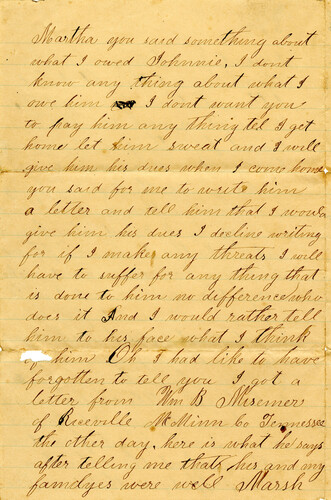 Martha you said something about
what I owed Johnnie, I dont
know any thing about what I
owe him I dont want you
to pay him any thing tel I get
home let him sweat and I will
give him his dues when I come home
you said for me to writ him
a letter and tell him that I would
give him his dues I decline writing
for if I make any threats I will
have to suffer for any thing that
is done to him no difference who
does it And I would rather tell
him to his face what I think
of him Oh I had like to have
forgotten to tell you I got a
letter from Wm B Mesimer
of Riceville McMinn Co Tennessee
the other day, here is what he says
after telling me that his and my
famlyes were well Marsh